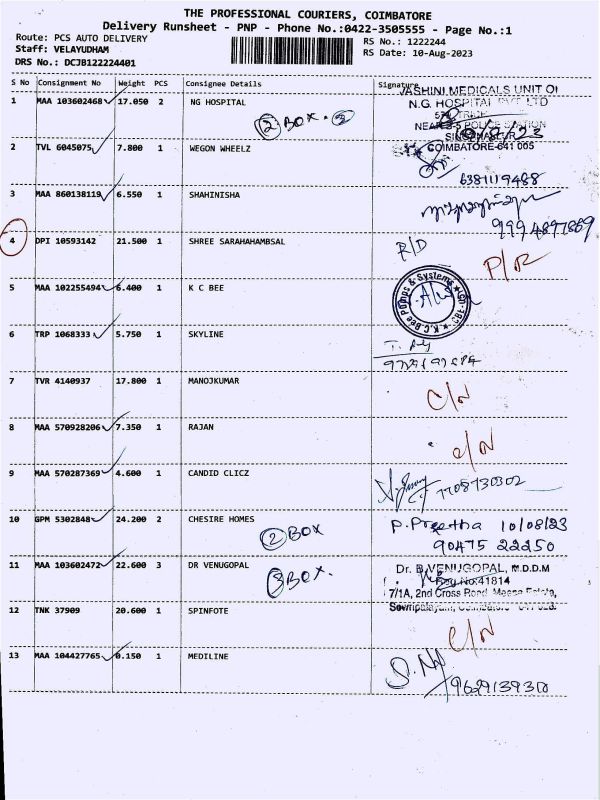 THE PROFESSIONAL COURIERS, COIMBATORE
Delivery Runsheet - PNP - Phone No.:0422-3505555 - Page No.:1
Route: PCS AUTO DELIVERY
RS No.: 1222244
Staff: VELAYUDHAM
RS Date: 10-Aug-2023
DRS No.: DCJB122224401
S No Consignment No Weight PCS Consignee Details Signature
1 MAA 103602468 17.050 2 NG HOSPITAL
YASHINI MEDICALS UNIT OF
N.G. HOSPITAL PVT LTD
② BOX
COIMBATORE-641 005
2 TVL 6045075 7.800 1 WEGON WHEELZ
6381119488
3 MAA 860138119 6.550 1 SHAHINISHA
4 DPI 10593142 21.500 1 SHREE SARAHAHAMBSAL
R/D
P/R
5 MAA 102255494 6.400 1 K C BEE
K.C. Bee Pumps & Systems
6 TRP 1068333 5.750 1 SKYLINE
7 TVR 4140937 17.800 1 MANOJKUMAR
C/N
8 MAA 570928206 7.350 1 RAJAN
C/N
9 MAA 570287369 4.600 1 CANDID CLICZ
7708730302
10 GPM 5302848 24.200 2 CHESIRE HOMES
② BOX
P. Preetha 10/08/23
90475 22250
11 MAA 103602472 22.600 3 DR VENUGOPAL
③ BOX.
Dr. B.VENUGOPAL, M.D.D.M
Reg.No:41814
7/1A, 2nd Cross Road
12 TNK 37909 20.600 1 SPINFOTE
C/N
13 MAA 104427765 0.150 1 MEDILINE